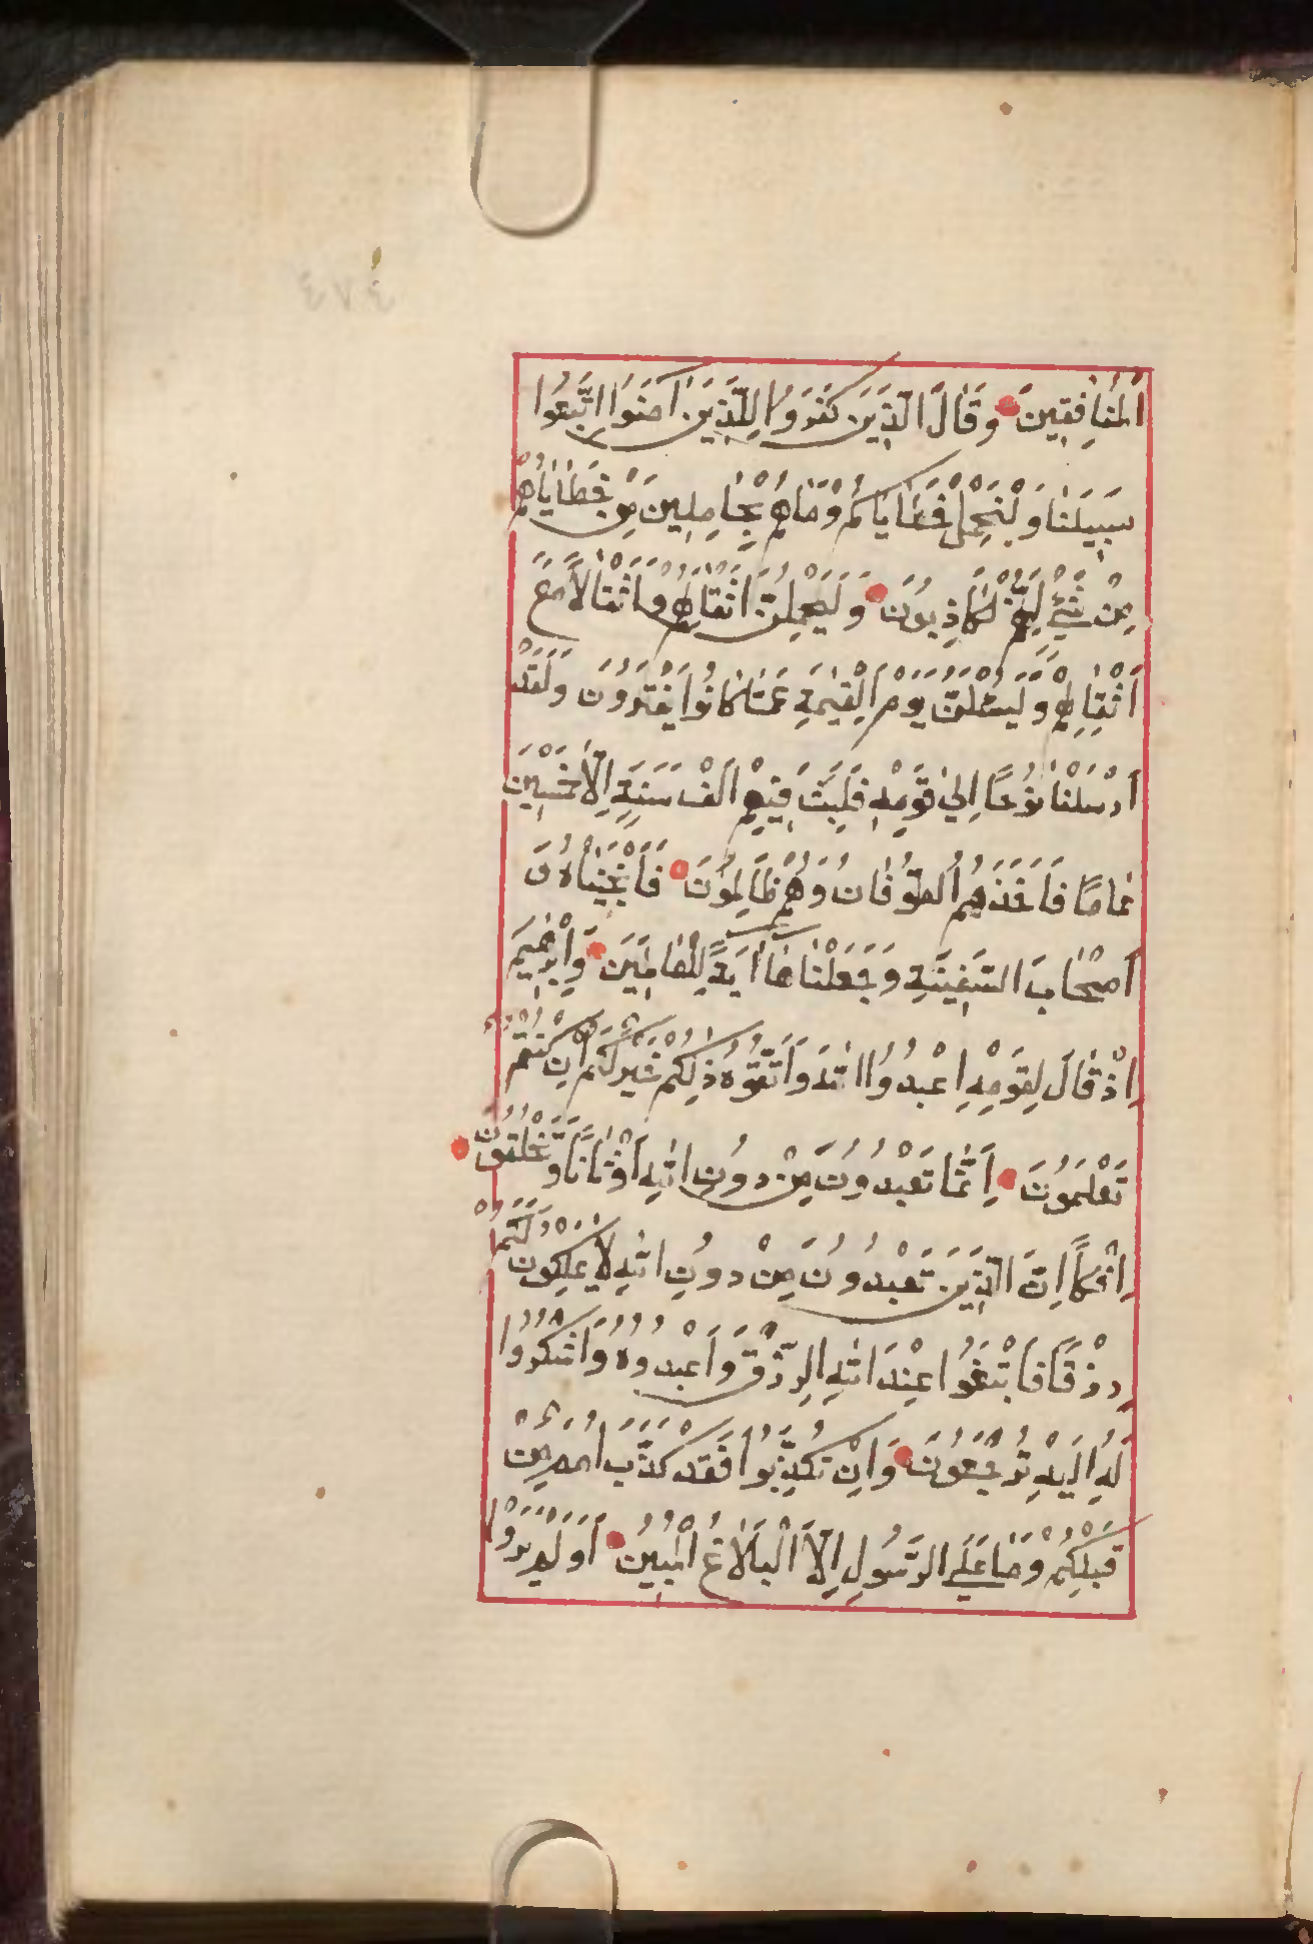 ٤٧٤
اَلْمُنَافِقِينَ وَقَالَ الَّذِينَ كَفَرُوا لِلَّذِينَ اٰمَنُوا اتَّبِعُوا
سَبِيلَنَا وَلْنَحْمِلْ خَطَايَاكُمْ وَمَا هُمْ بِحَامِلِينَ مِنْ خَطَايَاهُمْ
مِنْ شَيْءٍ اِنَّهُمْ لَكَاذِبُونَ وَلَيَحْمِلُنَّ اَثْقَالَهُمْ وَاَثْقَالًا مَعَ
اَثْقَالِهِمْ وَلَيُسْئَلُنَّ يَوْمَ الْقِيٰمَةِ عَمَّا كَانُوا يَفْتَرُونَ وَلَقَدْ
اَرْسَلْنَا نُوحًا اِلٰى قَوْمِهِ فَلَبِثَ فِيهِمْ اَلْفَ سَنَةٍ اِلَّا خَمْسِينَ
عَامًا فَاَخَذَهُمُ الطُّوفَانُ وَهُمْ ظَالِمُونَ فَاَنْجَيْنَاهُ وَ
اَصْحَابَ السَّفِينَةِ وَجَعَلْنَاهَا اٰيَةً لِلْعَالَمِينَ وَاِبْرٰهِيمَ
اِذْ قَالَ لِقَوْمِهِ اعْبُدُوا اللّٰهَ وَاتَّقُوهُ ذٰلِكُمْ خَيْرٌ لَكُمْ اِنْ كُنْتُمْ
تَعْلَمُونَ اِنَّمَا تَعْبُدُونَ مِنْ دُونِ اللّٰهِ اَوْثَانًا وَتَخْلُقُونَ
اِفْكًا اِنَّ الَّذِينَ تَعْبُدُونَ مِنْ دُونِ اللّٰهِ لَا يَمْلِكُونَ لَكُمْ
رِزْقًا فَابْتَغُوا عِنْدَ اللّٰهِ الرِّزْقَ وَاعْبُدُوهُ وَاشْكُرُوا
لَهُ اِلَيْهِ تُرْجَعُونَ وَاِنْ تُكَذِّبُوا فَقَدْ كَذَّبَ اُمَمٌ مِنْ
قَبْلِكُمْ وَمَا عَلَى الرَّسُولِ اِلَّا الْبَلَاغُ الْمُبِينُ اَوَلَمْ يَرَوْا